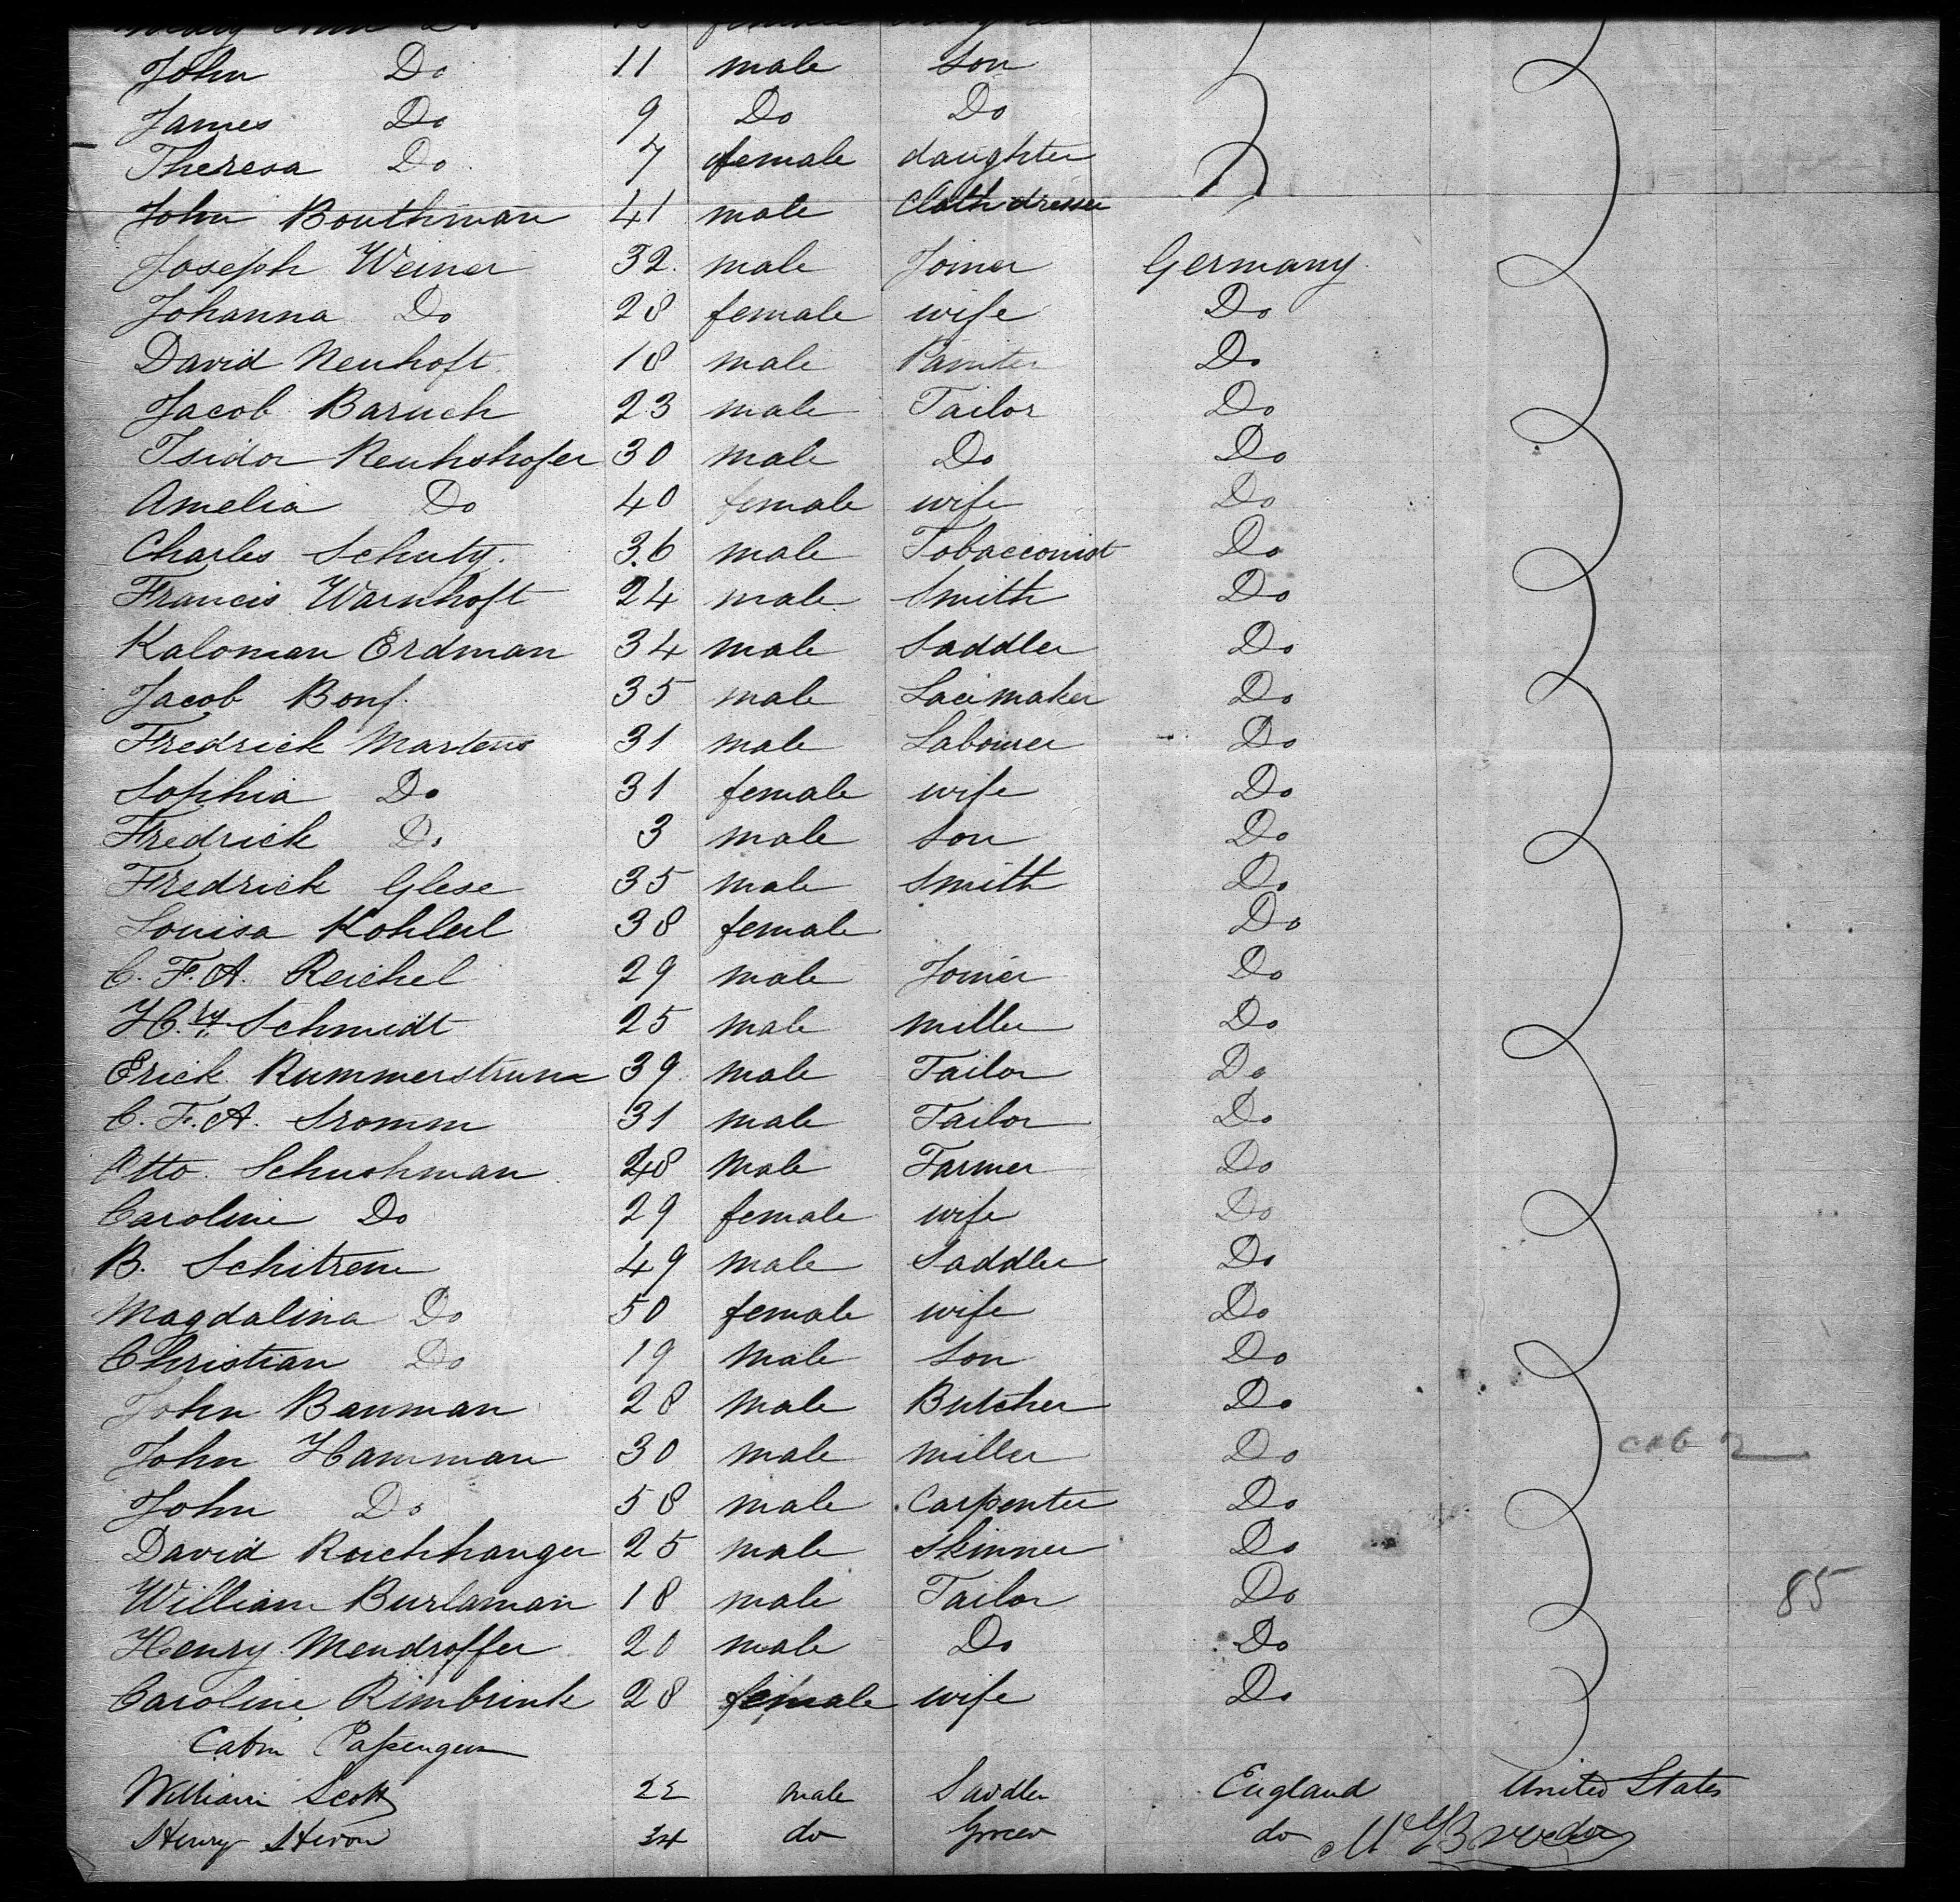 John Do 11 male Son
James Do 9 Do Do
Theresa Do 7 female daughter
John Bouthman 41 male Cloth dresser
Joseph Weiner 32. male Joiner Germany
Johanna Do 28 female wife Do
David Neuhoft 18 male Painter Do
Jacob Baruch 23 male Tailor Do
Isidor Reuhshofer 30 male Do Do
Amelia Do 40 female wife Do
Charles Schutz. 36 male Tobacconist Do
Francis Warnhoft 24 male Smith Do
Kaloman Erdman 34 male Saddler Do
Jacob Bonf. 35 male Lacemaker Do
Fredrick Martens 31 male Labourer Do
Sophia Do 31 female wife Do
Fredrick Do 3 male Son Do
Fredrick Glese 35 male Smith Do
Louisa Kohlerl 38 female Do
C. F. A. Reichel 29 male Joiner Do
H.ry Schmidt 25 male Miller Do
Erick Rummerstrum 39 male Tailor Do
C. F. A. Sromm 31 male Tailor Do
Otto Schushman 28 male Farmer Do
Caroline Do 29 female wife Do
B. Schitrem 49 male Saddler Do
Magdalina Do 50 female wife Do
Christian Do 19 male Son Do
John Bauman 28 male Butcher Do
John Hamman 30 male Miller Do
John Do 58 male Carpenter Do
David Roichhanger 25 male Skinner Do
William Burlaman 18 male Tailor Do 85
Henry Mendroffer 20 male Do Do
Caroline Rimbrink 28 female wife Do
Cabin Passengers
William Scott 22 male Sadler England United States
Henry 24 do Grocer do do